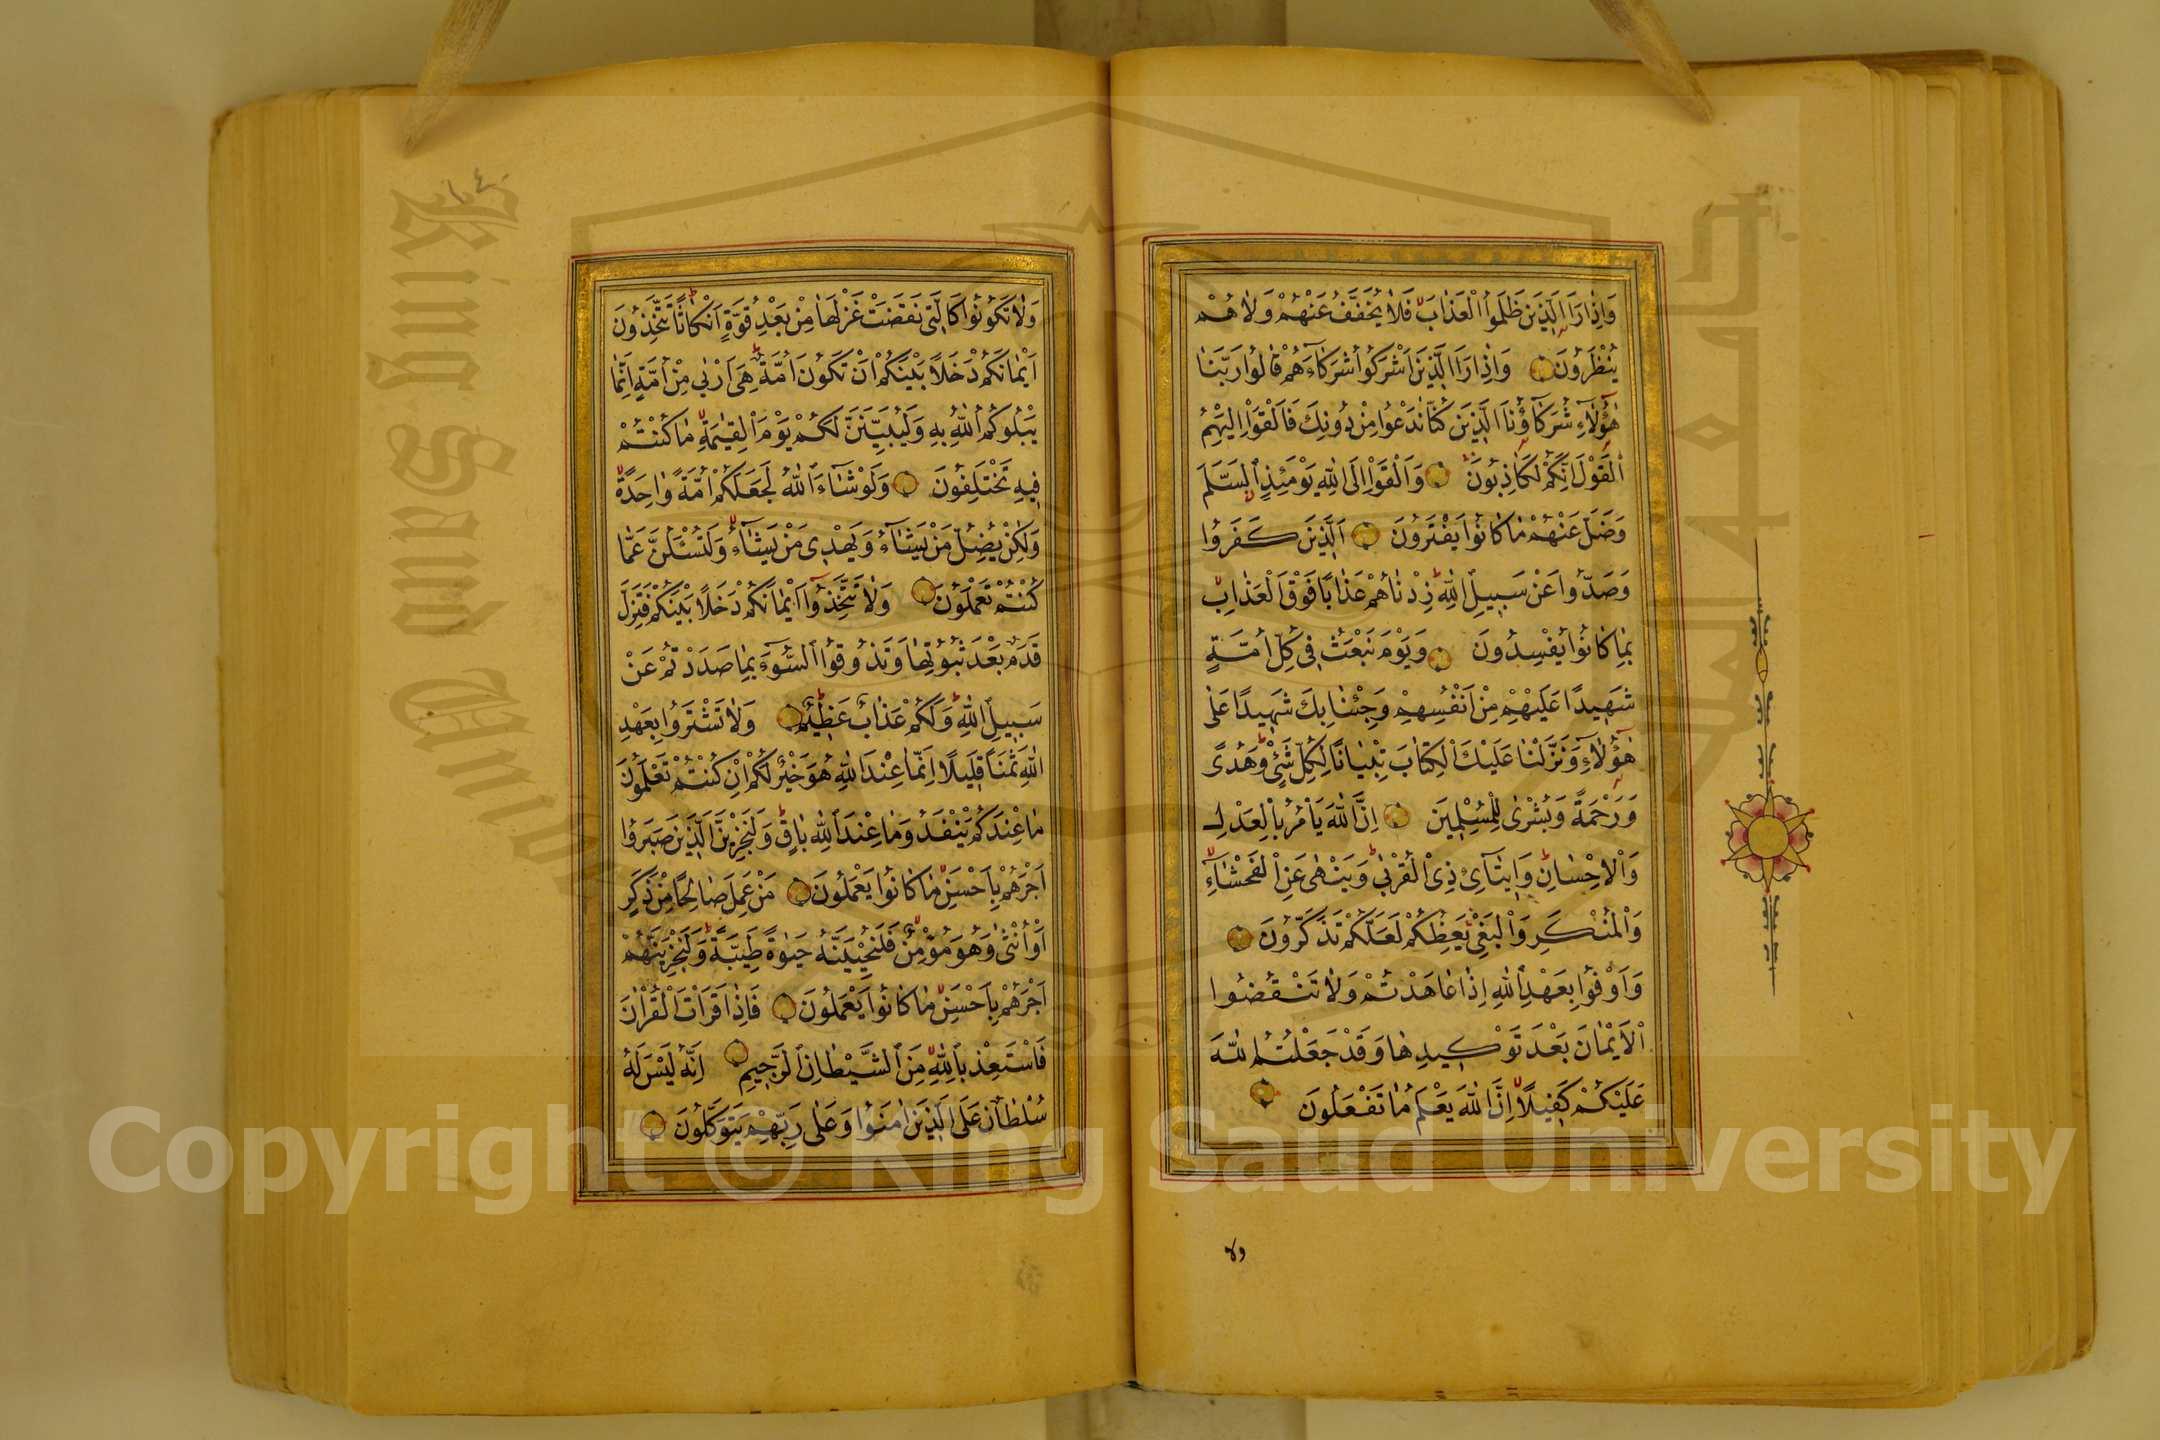 وَاِذَا رَاَ الَّذِينَ ظَلَمُوا الْعَذَابَ فَلَا يُخَفَّفُ عَنْهُمْ وَلَا هُمْ
يُنْظَرُونَ وَاِذَا رَاَ الَّذِينَ اَشْرَكُوا شُرَكَاءَهُمْ قَالُوا رَبَّنَا
هٰؤُلَاءِ شُرَكَاؤُنَا الَّذِينَ كُنَّا نَدْعُوا مِنْ دُونِكَ فَاَلْقَوْا اِلَيْهِمُ
الْقَوْلَ اِنَّكُمْ لَكَاذِبُونَ وَاَلْقَوْا اِلَى اللّٰهِ يَوْمَئِذٍ السَّلَمَ
وَضَلَّ عَنْهُمْ مَا كَانُوا يَفْتَرُونَ اَلَّذِينَ كَفَرُوا
وَصَدُّوا عَنْ سَبِيلِ اللّٰهِ زِدْنَاهُمْ عَذَابًا فَوْقَ الْعَذَابِ
بِمَا كَانُوا يُفْسِدُونَ وَيَوْمَ نَبْعَثُ فِي كُلِّ اُمَّةٍ
شَهِيدًا عَلَيْهِمْ مِنْ اَنْفُسِهِمْ وَجِئْنَا بِكَ شَهِيدًا عَلٰى
هٰؤُلَاءِ وَنَزَّلْنَا عَلَيْكَ الْكِتَابَ تِبْيَانًا لِكُلِّ شَيْءٍ وَهُدًى
وَرَحْمَةً وَبُشْرٰى لِلْمُسْلِمِينَ اِنَّ اللّٰهَ يَاْمُرُ بِالْعَدْلِ
وَالْاِحْسَانِ وَاِيتَاءِ ذِي الْقُرْبٰى وَيَنْهٰى عَنِ الْفَحْشَاءِ
وَالْمُنْكَرِ وَالْبَغْيِ يَعِظُكُمْ لَعَلَّكُمْ تَذَكَّرُونَ
وَاَوْفُوا بِعَهْدِ اللّٰهِ اِذَا عَاهَدْتُمْ وَلَا تَنْقُضُوا
الْاَيْمَانَ بَعْدَ تَوْكِيدِهَا وَقَدْ جَعَلْتُمُ اللّٰهَ
عَلَيْكُمْ كَفِيلًا اِنَّ اللّٰهَ يَعْلَمُ مَا تَفْعَلُونَ
ولا
١٤٠
وَلَا تَكُونُوا كَالَّتِي نَقَضَتْ غَزْلَهَا مِنْ بَعْدِ قُوَّةٍ اَنْكَاثًا تَتَّخِذُونَ
اَيْمَانَكُمْ دَخَلًا بَيْنَكُمْ اَنْ تَكُونَ اُمَّةٌ هِيَ اَرْبٰى مِنْ اُمَّةٍ اِنَّمَا
يَبْلُوكُمُ اللّٰهُ بِهِ وَلَيُبَيِّنَنَّ لَكُمْ يَوْمَ الْقِيٰمَةِ مَا كُنْتُمْ
فِيهِ تَخْتَلِفُونَ وَلَوْ شَاءَ اللّٰهُ لَجَعَلَكُمْ اُمَّةً وَاحِدَةً
وَلٰكِنْ يُضِلُّ مَنْ يَشَاءُ وَيَهْدِي مَنْ يَشَاءُ وَلَتُسْئَلُنَّ عَمَّا
كُنْتُمْ تَعْمَلُونَ وَلَا تَتَّخِذُوا اَيْمَانَكُمْ دَخَلًا بَيْنَكُمْ فَتَزِلَّ
قَدَمٌ بَعْدَ ثُبُوتِهَا وَتَذُوقُوا السُّوءَ بِمَا صَدَدْتُمْ عَنْ
سَبِيلِ اللّٰهِ وَلَكُمْ عَذَابٌ عَظِيمٌ وَلَا تَشْتَرُوا بِعَهْدِ
اللّٰهِ ثَمَنًا قَلِيلًا اِنَّمَا عِنْدَ اللّٰهِ هُوَ خَيْرٌ لَكُمْ اِنْ كُنْتُمْ تَعْلَمُونَ
مَا عِنْدَكُمْ يَنْفَدُ وَمَا عِنْدَ اللّٰهِ بَاقٍ وَلَنَجْزِيَنَّ الَّذِينَ صَبَرُوا
اَجْرَهُمْ بِاَحْسَنِ مَا كَانُوا يَعْمَلُونَ مَنْ عَمِلَ صَالِحًا مِنْ ذَكَرٍ
اَوْ اُنْثٰى وَهُوَ مُؤْمِنٌ فَلَنُحْيِيَنَّهُ حَيٰوةً طَيِّبَةً وَلَنَجْزِيَنَّهُمْ
اَجْرَهُمْ بِاَحْسَنِ مَا كَانُوا يَعْمَلُونَ فَاِذَا قَرَاْتَ الْقُرْاٰنَ
فَاسْتَعِذْ بِاللّٰهِ مِنَ الشَّيْطَانِ الرَّجِيمِ اِنَّهُ لَيْسَ لَهُ
سُلْطَانٌ عَلَى الَّذِينَ اٰمَنُوا وَعَلٰى رَبِّهِمْ يَتَوَكَّلُونَ
King Saud University
Copyright © King Saud University